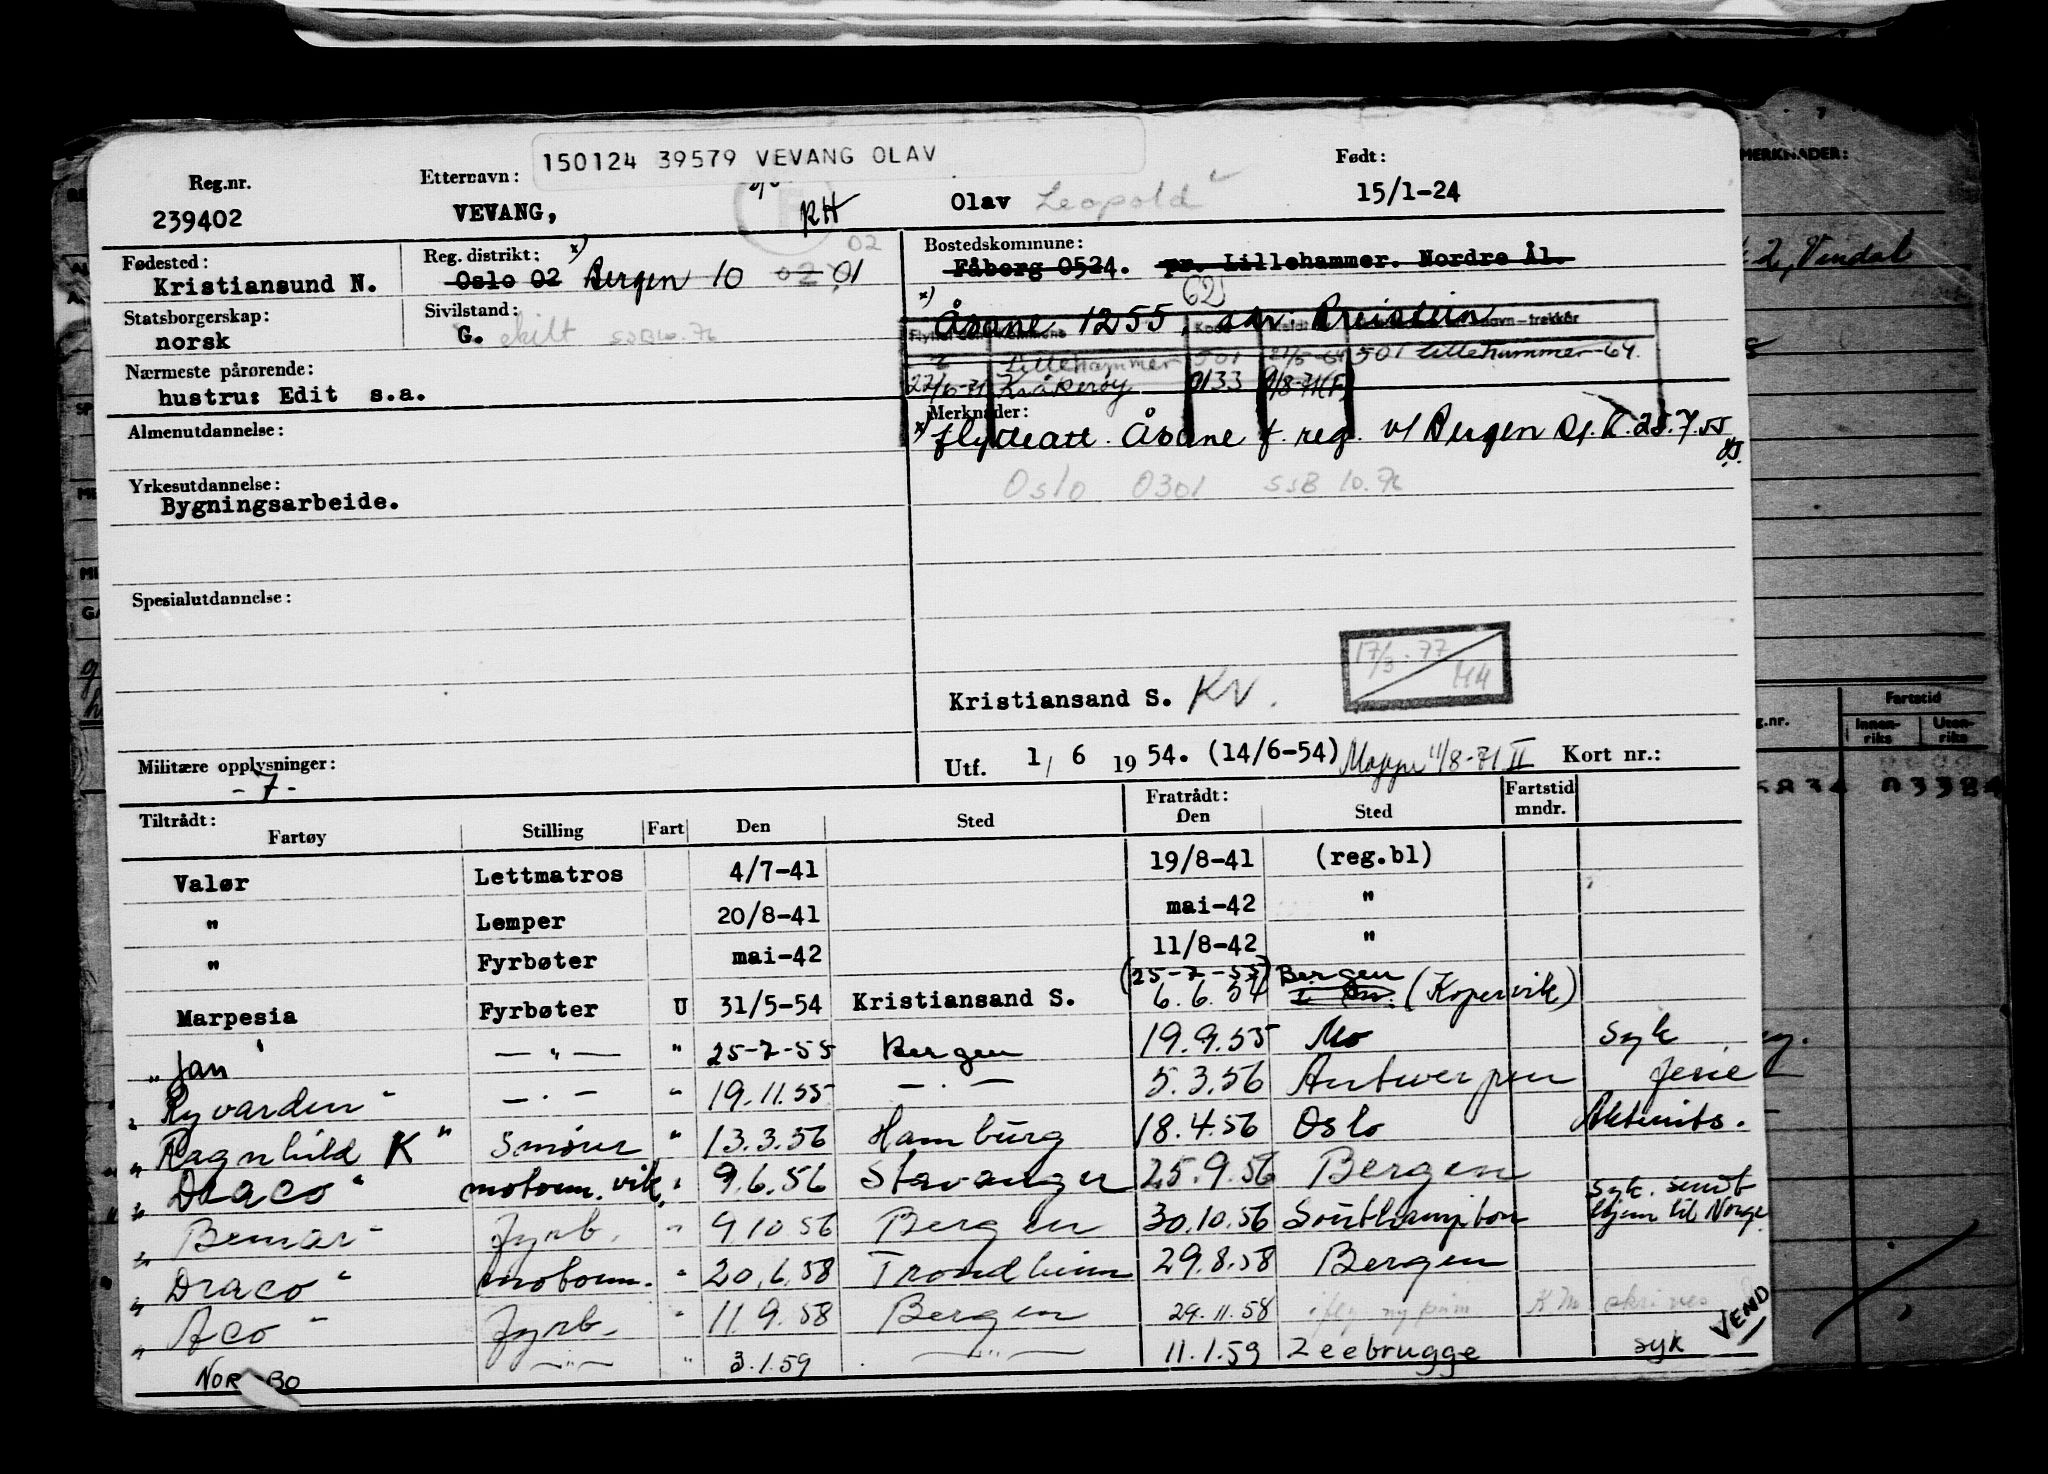 150124 39579 VEVANG OLAV
Reg.nr. Etternavn: Født:
239402 VEVANG, RH Olav Leopold 15/1-24
Fødested: Reg. distrikt: x) 02 Bostedskommune:
Kristiansund N. Oslo 02 Bergen 10 02 01 Fåberg 0524. pr. Lillehammer. Nordre Ål.
Statsborgerskap: Sivilstand: x) Åsane 1255, adr. Breistein (62)
norsk G. skilt SSB 10.76
Lillehammer 501 21/5-64 501 Lillehammer 64.
Nærmeste pårørende: 22/6-71 Kråkerøy 0133 9/8-71(F)
hustru: Edit s.a.
Almenutdannelse: Merknader:
x) flytteatt. Åsane f. reg. v/ Bergen Sj.k. 25.7.55
Yrkesutdannelse: Oslo 0301 SSB 10.76
Bygningsarbeide.
Spesialutdannelse:
17/3-77
Kristiansand S. KV.
Militære opplysninger: Utf. 1/6 1954. (14/6-54) Mappe 11/8-71 II Kort nr.:
-7-
Tiltrådt: Fratrådt: Fartstid
Fartøy Stilling Fart Den Sted Den Sted mndr.
Valør Lettmatros 4/7-41 19/8-41 (reg.bl)
" Lemper 20/8-41 mai-42 "
" Fyrbøter mai-42 11/8-42 "
(25-7-55) Bergen
Marpesia Fyrbøter U 31/5-54 Kristiansand S. 6.6.54 (Kopervik)
"Jan" — " — " 25-7-55 Bergen 19.9.55 Mo Syk
"Ryvarden" — " — " 19.11.55 — " — 5.3.56 Antwerpen Ferie
"Ragnhild K" Smører " 13.3.56 Hamburg 18.4.56 Oslo Aktinits.
"Draco" motorm. vik. " 9.6.56 Stavanger 25.9.56 Bergen
"Bemar" Fyrb. " 9.10.56 Bergen 30.10.56 Southampton Syk. sendt hjem til Norge
"Draco" motorm. " 20.6.58 Trondheim 29.8.58 Bergen
"Aco" Fyrb. " 11.9.58 Bergen 29.11.58
NORBO — " — " 3.1.59 — " — 11.1.59 Zeebrugge syk
VEND
MERKNADER:
Fartstid
Innen-riks Uten-riks